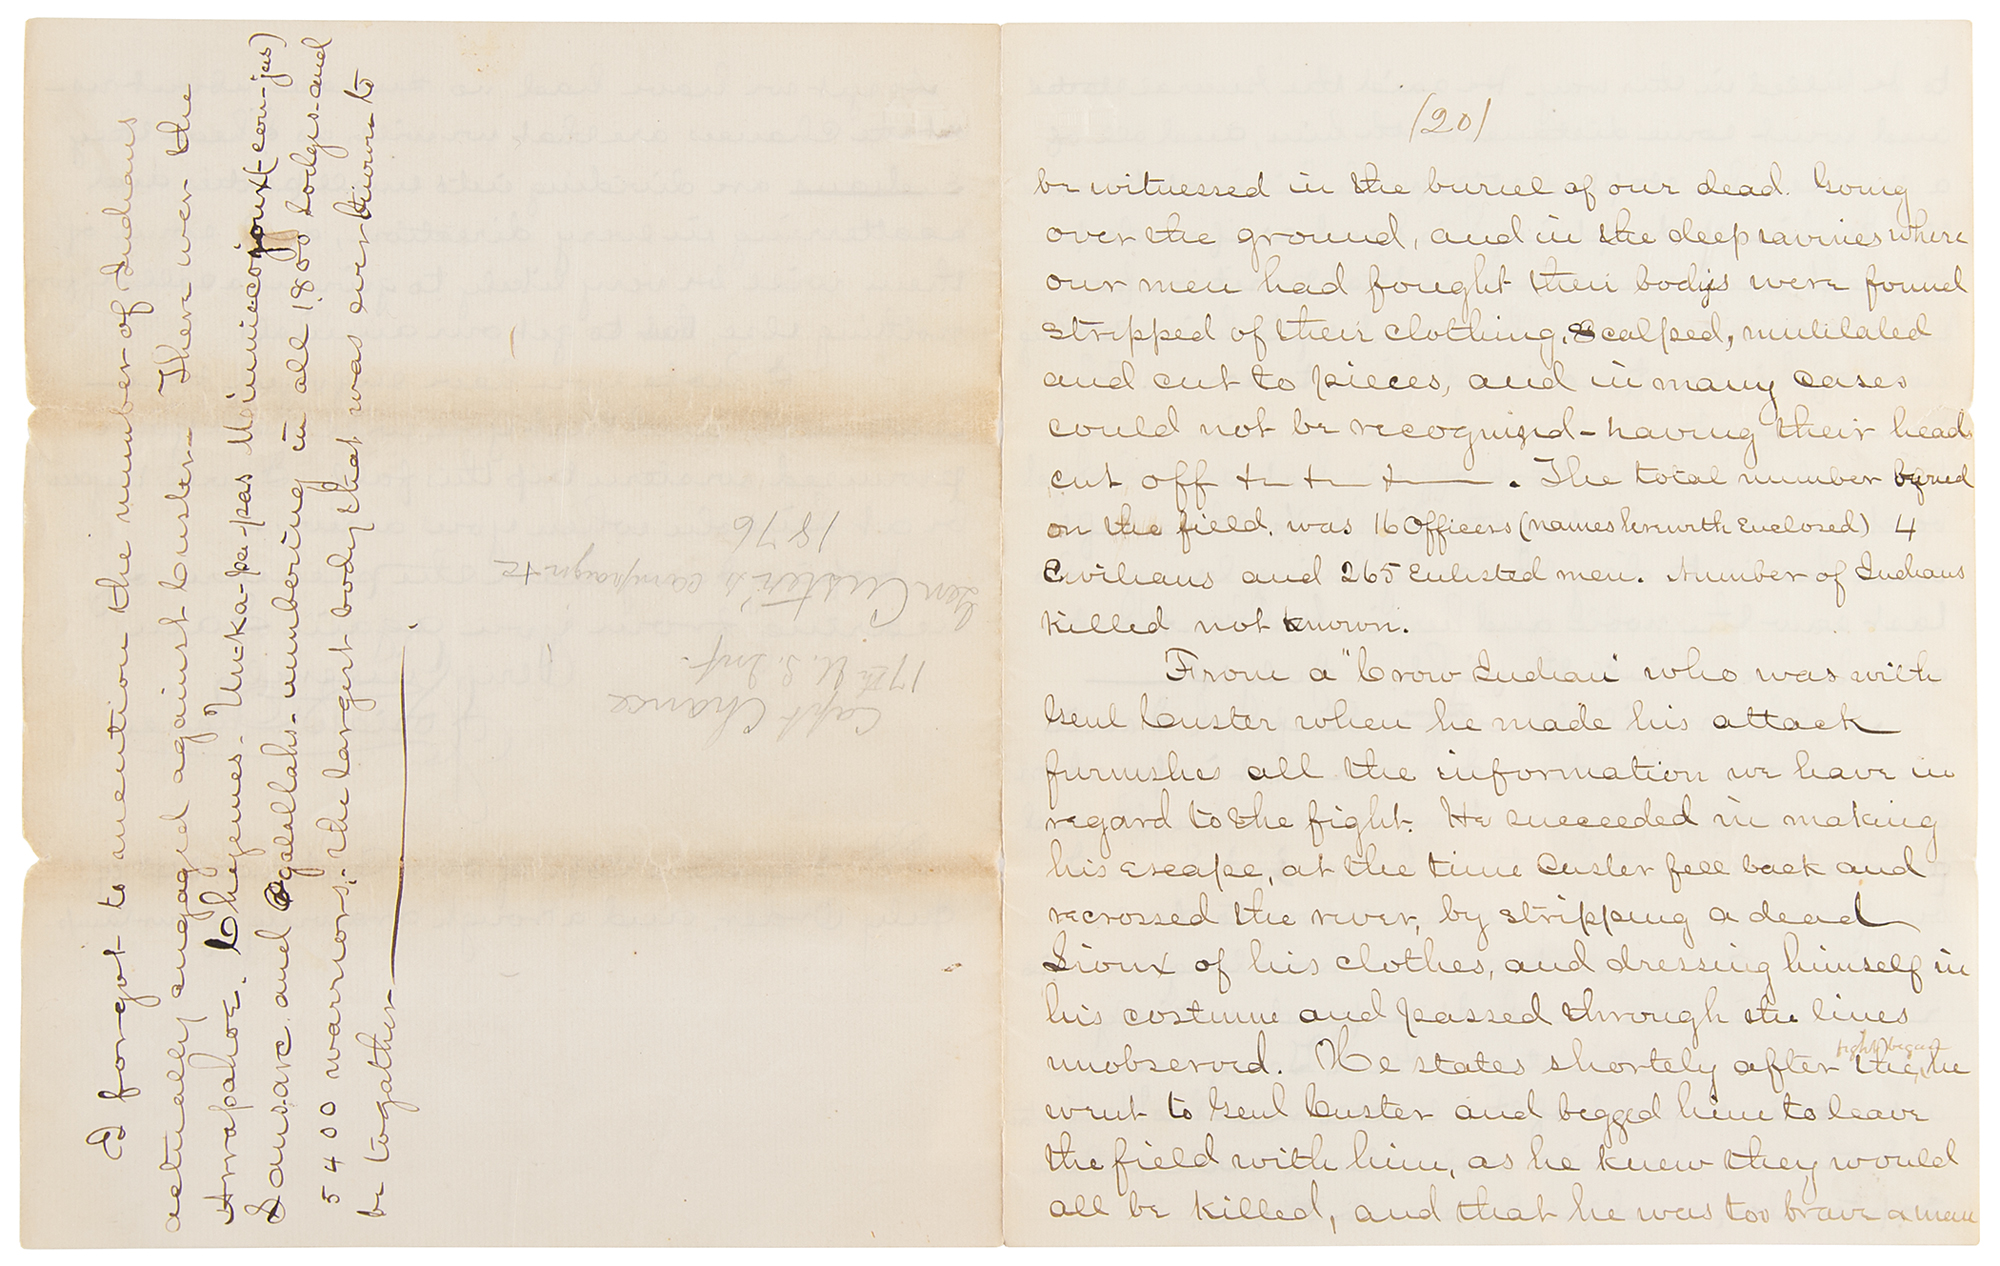 I forgot to mention the number of Indians
actually engaged against Custer - There were the
Arrapahoe. Cheyennes - Un-ka-pa-pas Minniecojoux (-jas)
Sansarc and Ogalallahs - numbering in all 1800 Lodges and
5400 warriors; the largest body that was ever known to
be together
Capt Chance
17th U.S. Inf.
Gen Custer's campaign &c
1876
(20)
be witnessed in the buriel of our dead. Going
over the ground, and in the deep ravines where
our men had fought their bodys were found
stripped of their clothing, Scalped, mutilated
and cut to pieces, and in many cases
could not be recognized - having their heads
cut off + + + . The total number buried
on the field. was 16 Officers (names herewith Enclosed) 4
Civilians and 265 Enlisted men. Number of Indians
killed not known.
From a "Crow Indian" who was with
Genl Custer when he made his attack
furnishes all the information we have in
regard to the fight. He succeeded in making
his escape, at the time Custer fell back and
recrossed the river, by stripping a dead
Sioux of his clothes, and dressing himself in
his costume and passed through the lines
unobserved. He states shortely after the fight began he
went to Genl Custer and begged him to leave
the field with him, as he knew they would
all be killed, and that he was too brave a man